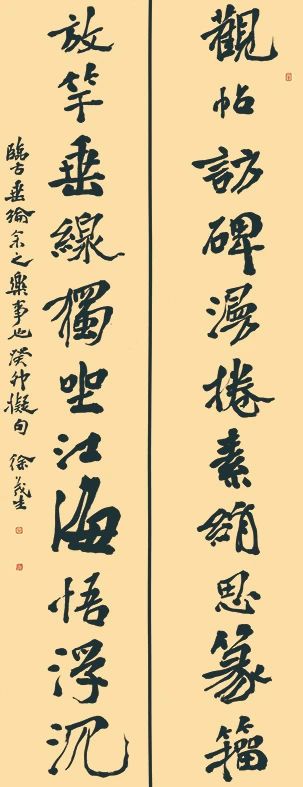 觀帖訪碑漫捲素絹思篆籀
放竿垂線獨坐江海悟浮沉
臨古垂綸余之樂事也癸卯擬句 徐